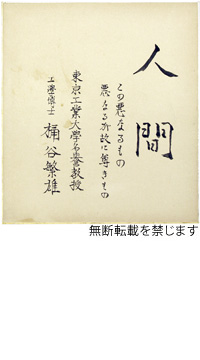 人間
この悪なるもの
悪なる所故に尊きもの
東京工業大學名誉教授
工学博士 桶谷繁雄
無断転載を禁じます